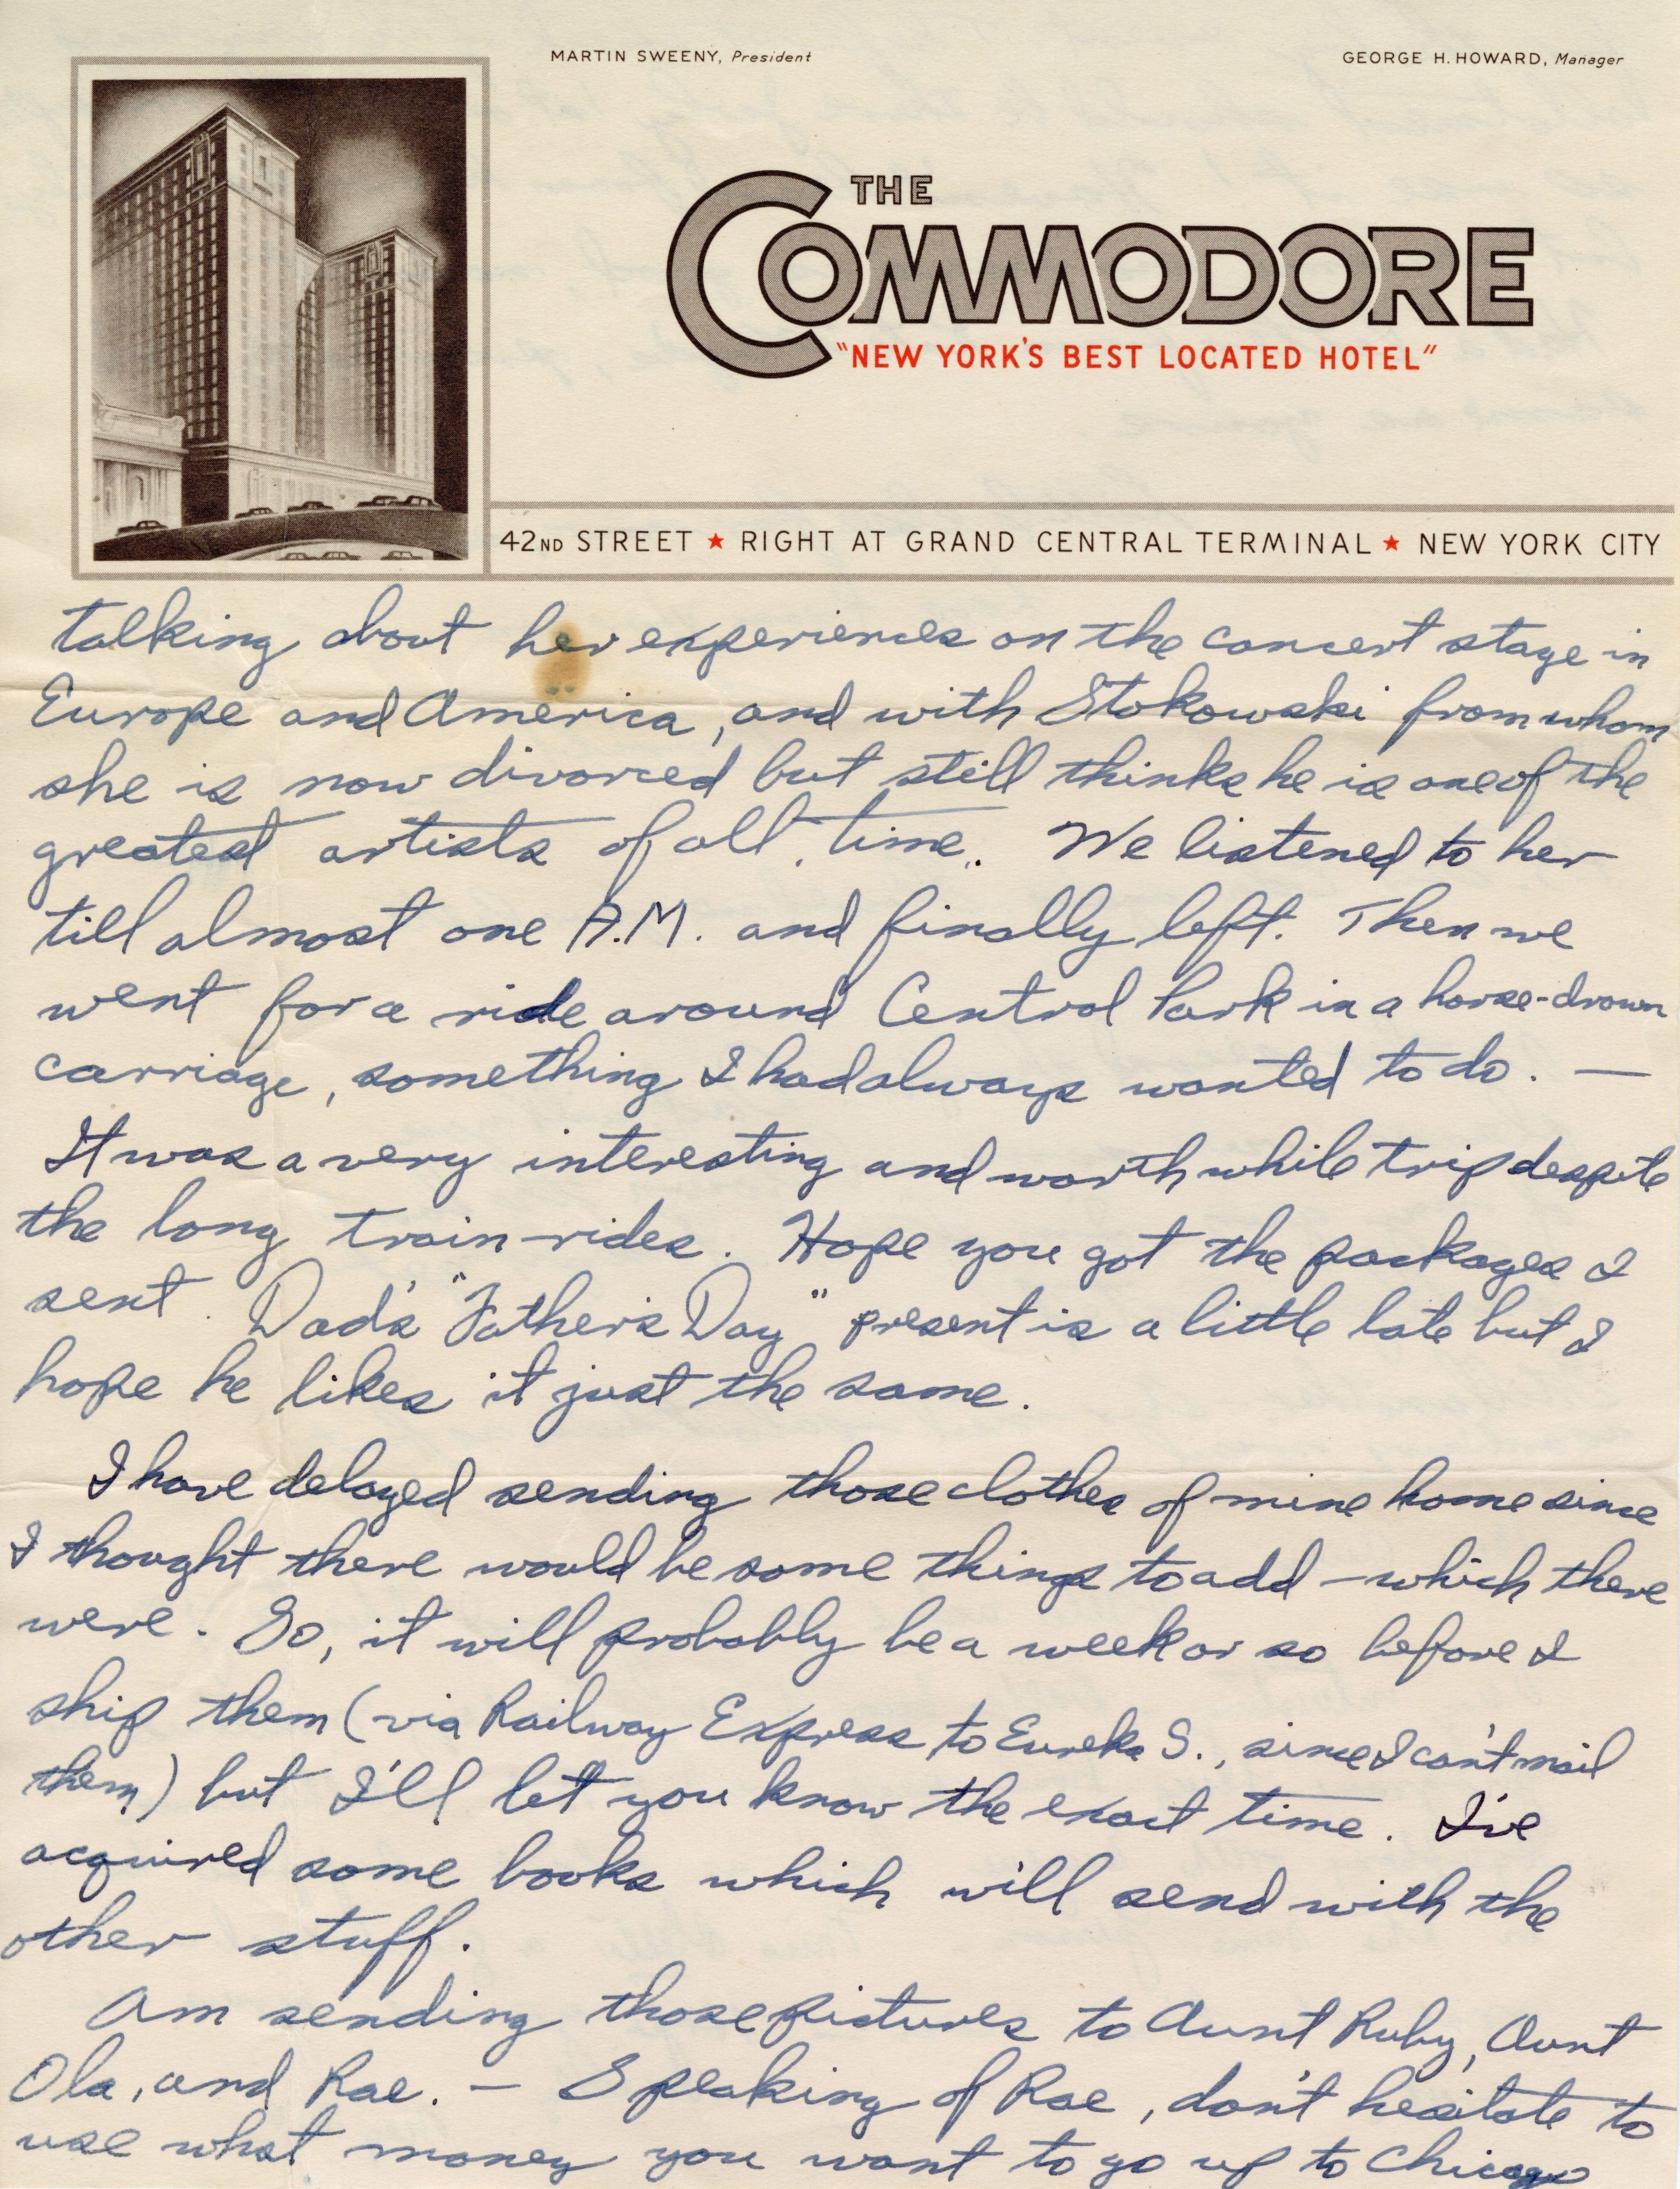 MARTIN SWEENY, President
GEORGE H. HOWARD, Manager
THE
COMMODORE
"NEW YORK'S BEST LOCATED HOTEL"
42ND STREET ★ RIGHT AT GRAND CENTRAL TERMINAL ★ NEW YORK CITY
talking about her experiences on the concert stage in
Europe and America, and with Stokowski from whom
she is now divorced but still thinks he is one of the
greatest artists of all time. We listened to her
till almost one A.M. and finally left. Then we
went for a ride around Central Park in a horse-drawn
carriage, something I had always wanted to do. —
It was a very interesting and worth while trip despite
the long train-rides. Hope you got the packages I
sent. Dad's "Father's Day" present is a little late but I
hope he likes it just the same.
I have delayed sending those clothes of mine home since
I thought there would be some things to add – which there
were. So, it will probably be a week or so before I
ship them (via Railway Express to Eureka S., since I can't mail
them) but I'll let you know the exact time. I've
acquired some books which will send with the
other stuff.
Am sending those pictures to Aunt Ruby, Aunt
Ola, and Rae. — Speaking of Rae, don't hesitate to
use what money you want to go up to Chicago